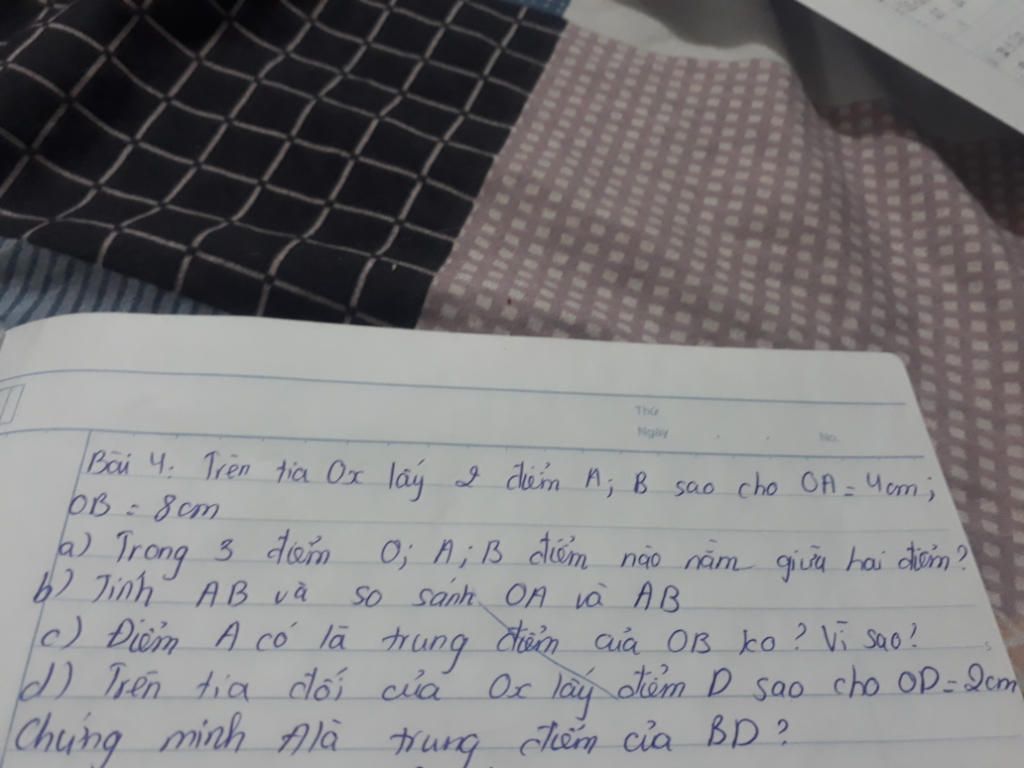 Thứ
Ngày
No.
Bài 4: Trên tia Ox lấy 2 điểm A; B sao cho OA = 4cm;
OB = 8cm
a) Trong 3 điểm O; A; B điểm nào nằm giữa hai điểm?
b) Tính AB và so sánh OA và AB
c) Điểm A có là trung điểm của OB ko? Vì sao?
d) Trên tia đối của Ox lấy điểm D sao cho OD = 2cm
Chứng minh A là trung điểm của BD?